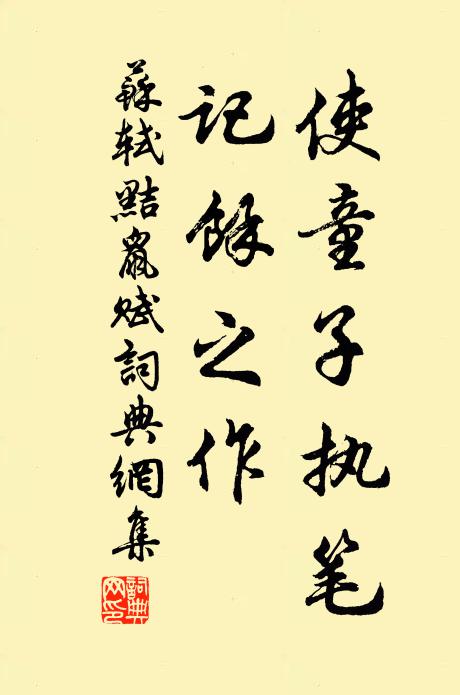 使童子执笔
记馀之作
蘇軾黠鼠赋詞典網集
詞典网印